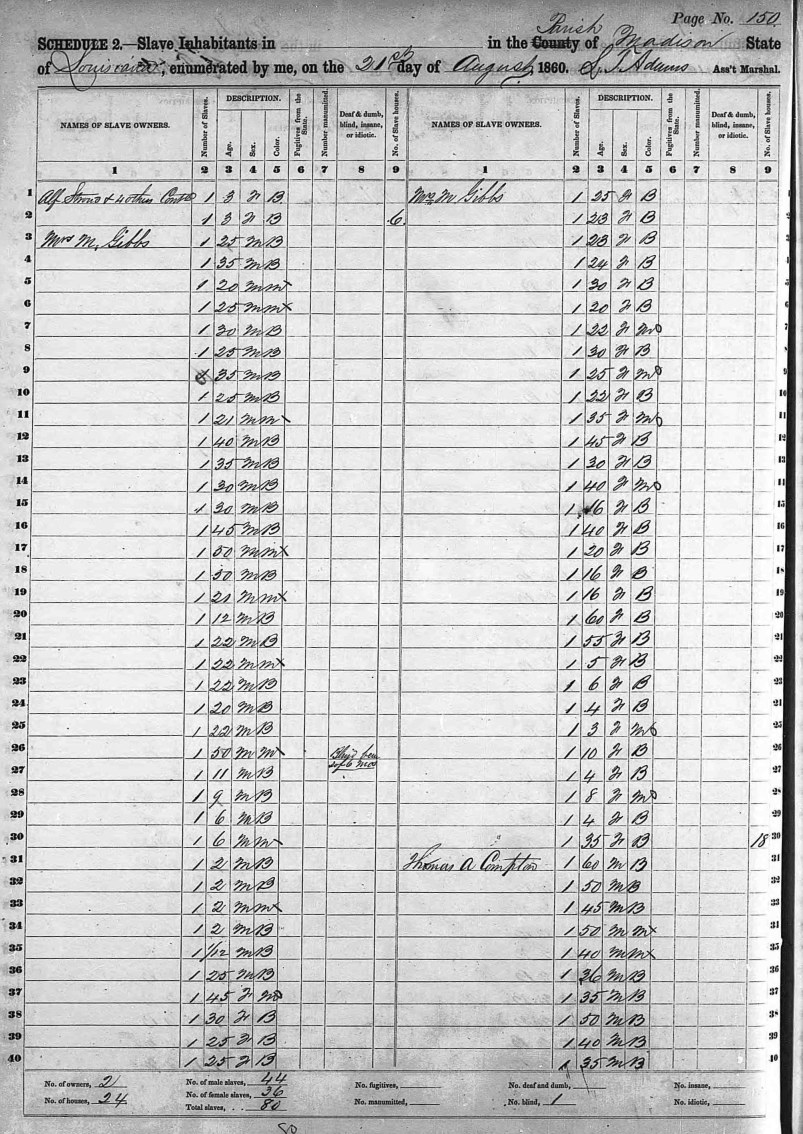 Page No. 150
SCHEDULE 2.—Slave Inhabitants in in the County Parish of Madison State
of Louisiana, enumerated by me, on the 21st day of August 1860. S. J. Adams Ass't Marshal.
NAMES OF SLAVE OWNERS. Number of Slaves. DESCRIPTION. Age. Sex. Color. Fugitives from the State. Number manumitted. Deaf & dumb, blind, insane, or idiotic. No. of Slave houses. NAMES OF SLAVE OWNERS. Number of Slaves. DESCRIPTION. Age. Sex. Color. Fugitives from the State. Number manumitted. Deaf & dumb, blind, insane, or idiotic. No. of Slave houses.
1 2 3 4 5 6 7 8 9 1 2 3 4 5 6 7 8 9
1 Alf Strous & 4 others 1 3 F B Mrs M Gibbs 1 25 F B 1
2 1 3 F B 6 1 23 F B 2
3 Mrs M. Gibbs 1 25 M B 1 23 F B 3
4 1 35 M B 1 24 F B 4
5 1 20 M M 1 30 F B 5
6 1 25 M M 1 20 F B 6
7 1 30 M B 1 22 F M 7
8 1 25 M B 1 30 F B 8
9 35 M B 1 25 F M 9
10 1 25 M B 1 22 F B 10
11 1 21 M M 1 35 F M 11
12 1 40 M B 1 45 F B 12
13 1 35 M B 1 30 F B 13
14 1 30 M B 1 40 F M 14
15 1 30 M B 1 16 F B 15
16 1 45 M B 1 40 F B 16
17 1 50 M M 1 20 F B 17
18 1 50 M B 1 16 F B 18
19 1 21 M M 1 16 F B 19
20 1 12 M B 1 60 F B 20
21 1 22 M B 1 55 F B 21
22 1 22 M M 1 5 F B 22
23 1 22 M B 1 6 F B 23
24 1 20 M B 1 4 F B 24
25 1 22 M B 1 3 F M 25
26 1 50 M M Blind 1 10 F B 26
27 1 11 M B 6 mos 1 4 F B 27
28 1 9 M B 1 8 F M 28
29 1 6 M B 1 4 F B 29
30 1 6 M M 1 35 F B 18 30
31 1 2 M B Thomas A Compton 1 60 M B 31
32 1 2 M B 1 50 M B 32
33 1 2 M M 1 45 M B 33
34 1 2 M B 1 50 M M 34
35 1 1/12 M B 1 40 M M 35
36 1 25 M B 1 36 M B 36
37 1 45 F M 1 35 M B 37
38 1 30 F B 1 50 M B 38
39 1 25 F B 1 40 M B 39
40 1 25 F B 1 35 M B 40
No. of owners, 2 No. of male slaves, 44 No. fugitives, No. deaf and dumb, No. insane,
No. of houses, 24 No. of female slaves, 36 No. manumitted, No. blind, 1 No. idiotic,
Total slaves, 80
80